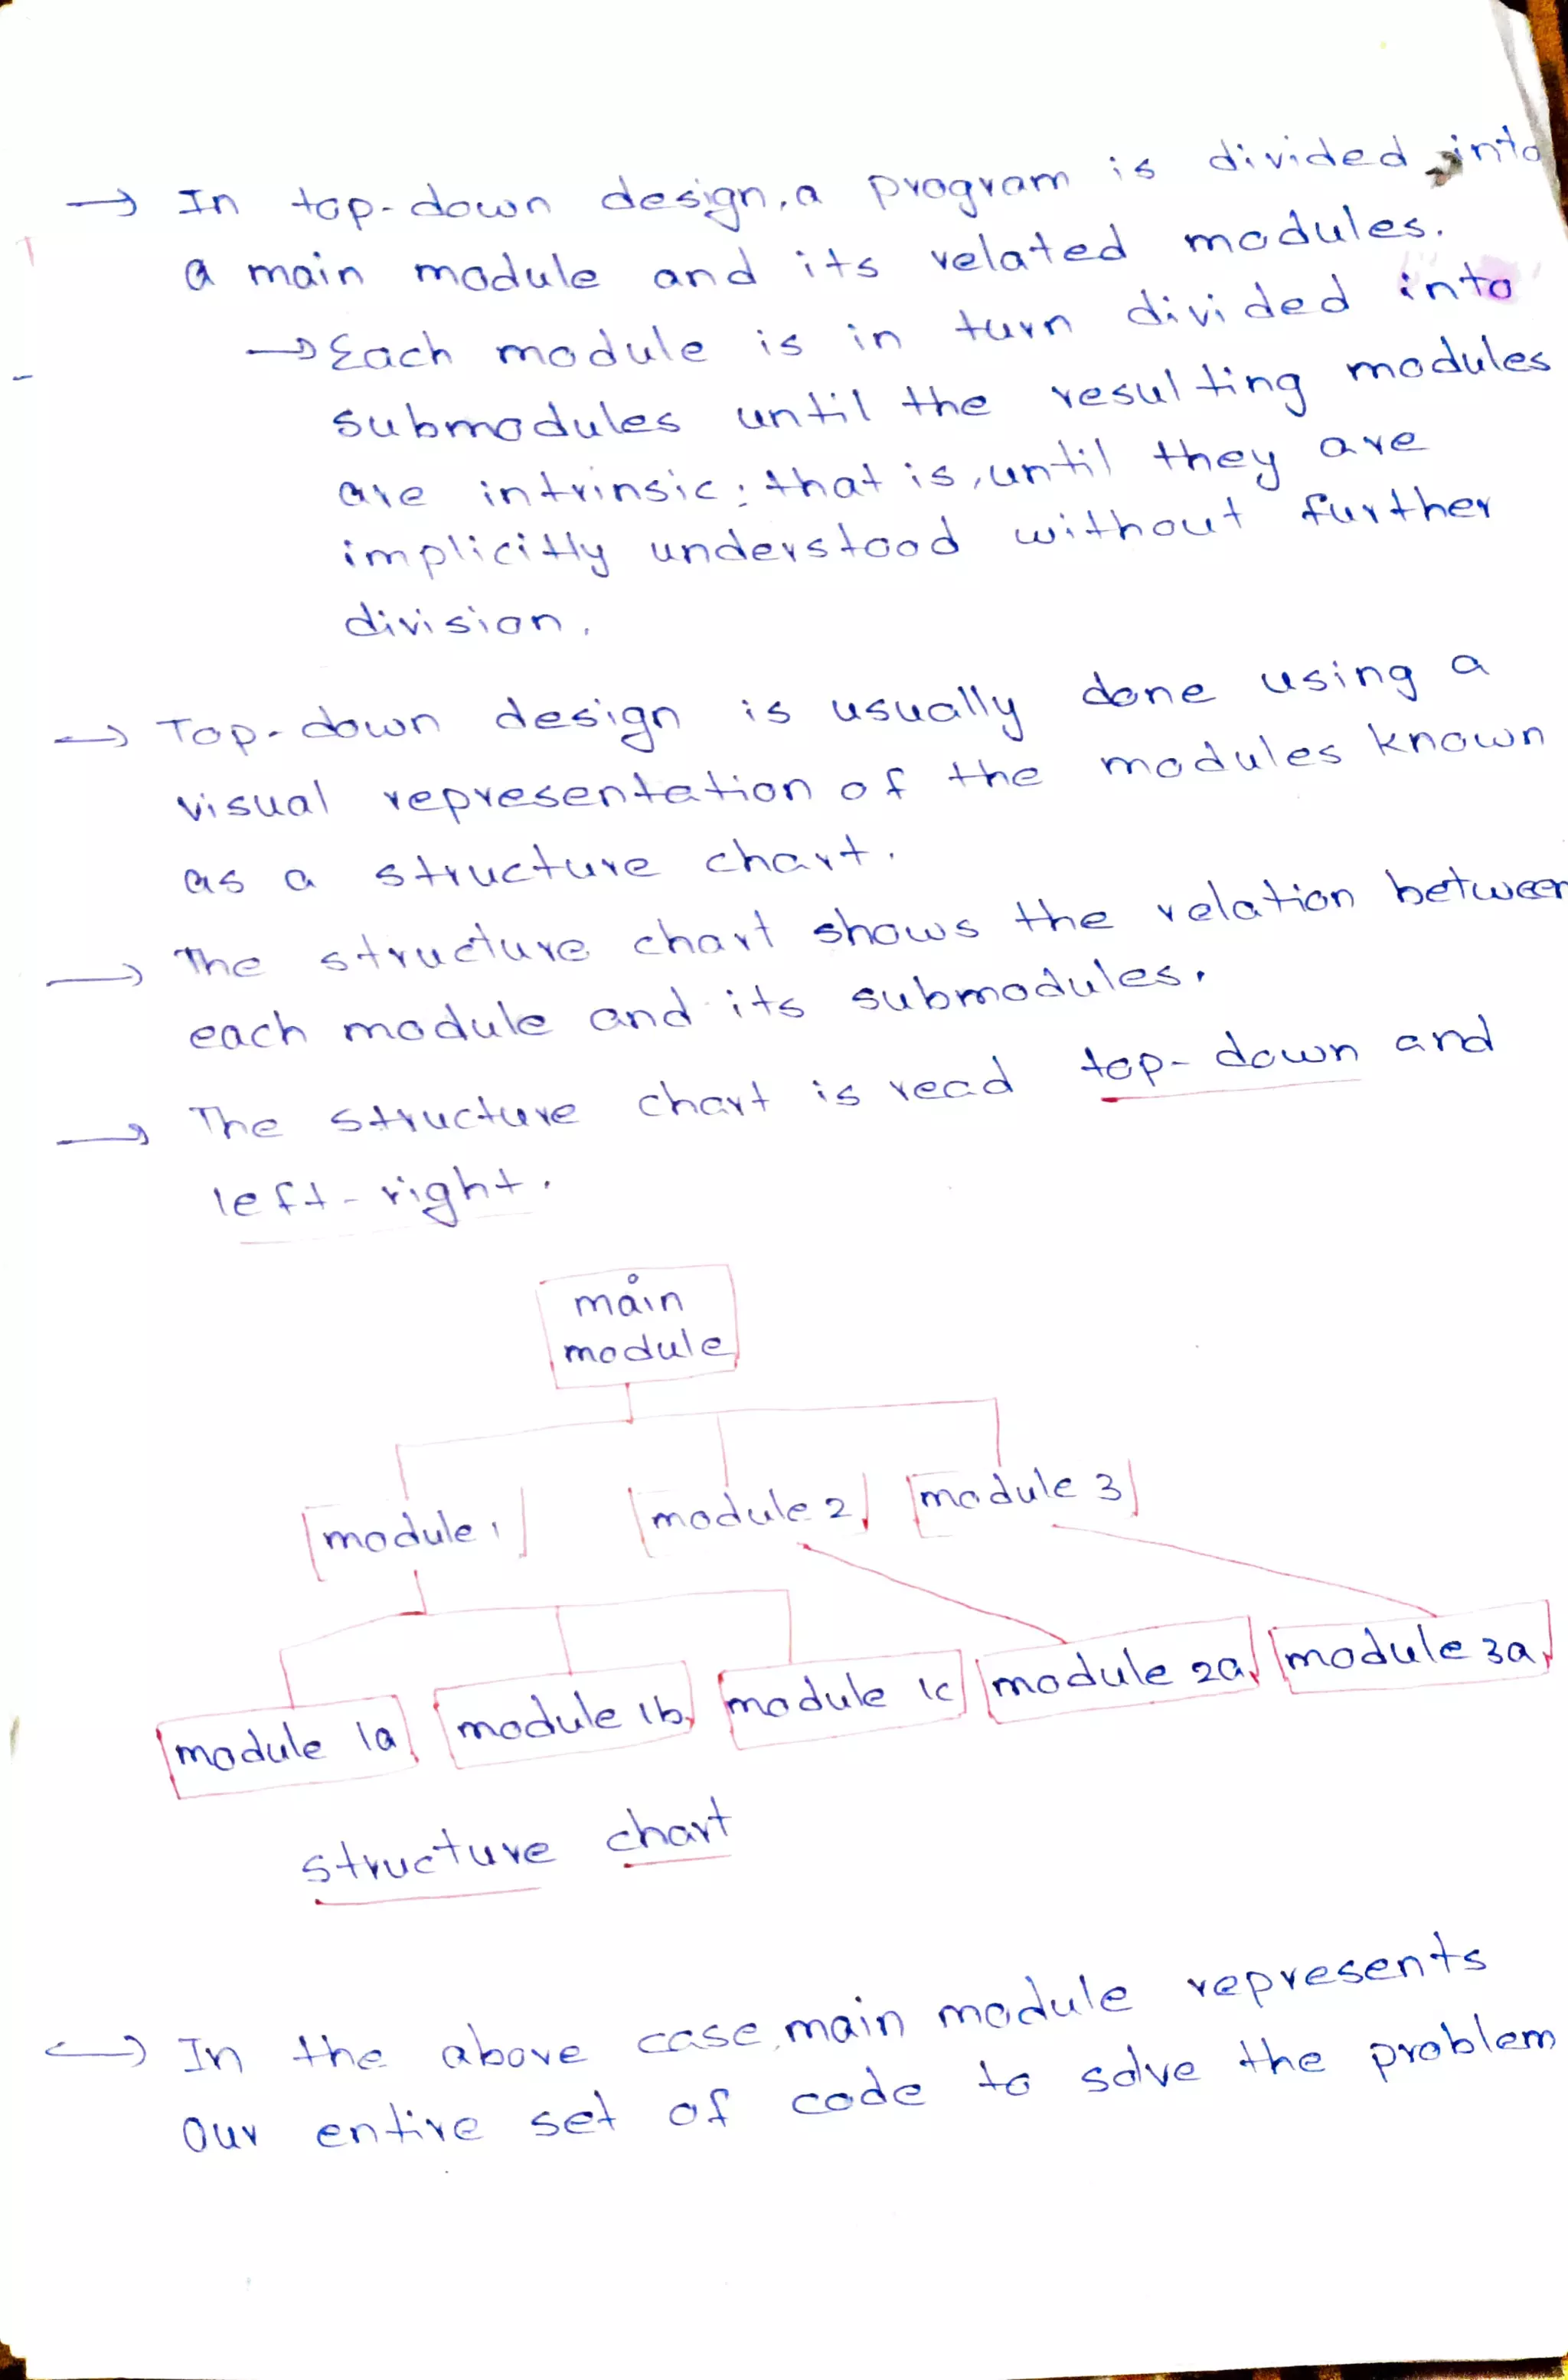 → In top-down design, a program is divided into
a main module and its related modules.
→ Each module is in turn divided into
submodules until the resulting modules
are intrinsic; that is, until they are
implicitly understood without further
division.
→ Top-down design is usually done using a
visual representation of the modules known
as a structure chart.
→ The structure chart shows the relation between
each module and its submodules.
→ The structure chart is read top-down and
left-right.
main
module
module 1
module 2
module 3
module 1a
module 1b
module 1c
module 2a
module 3a
structure chart
→ In the above case, main module represents
Our entire set of code to solve the problem